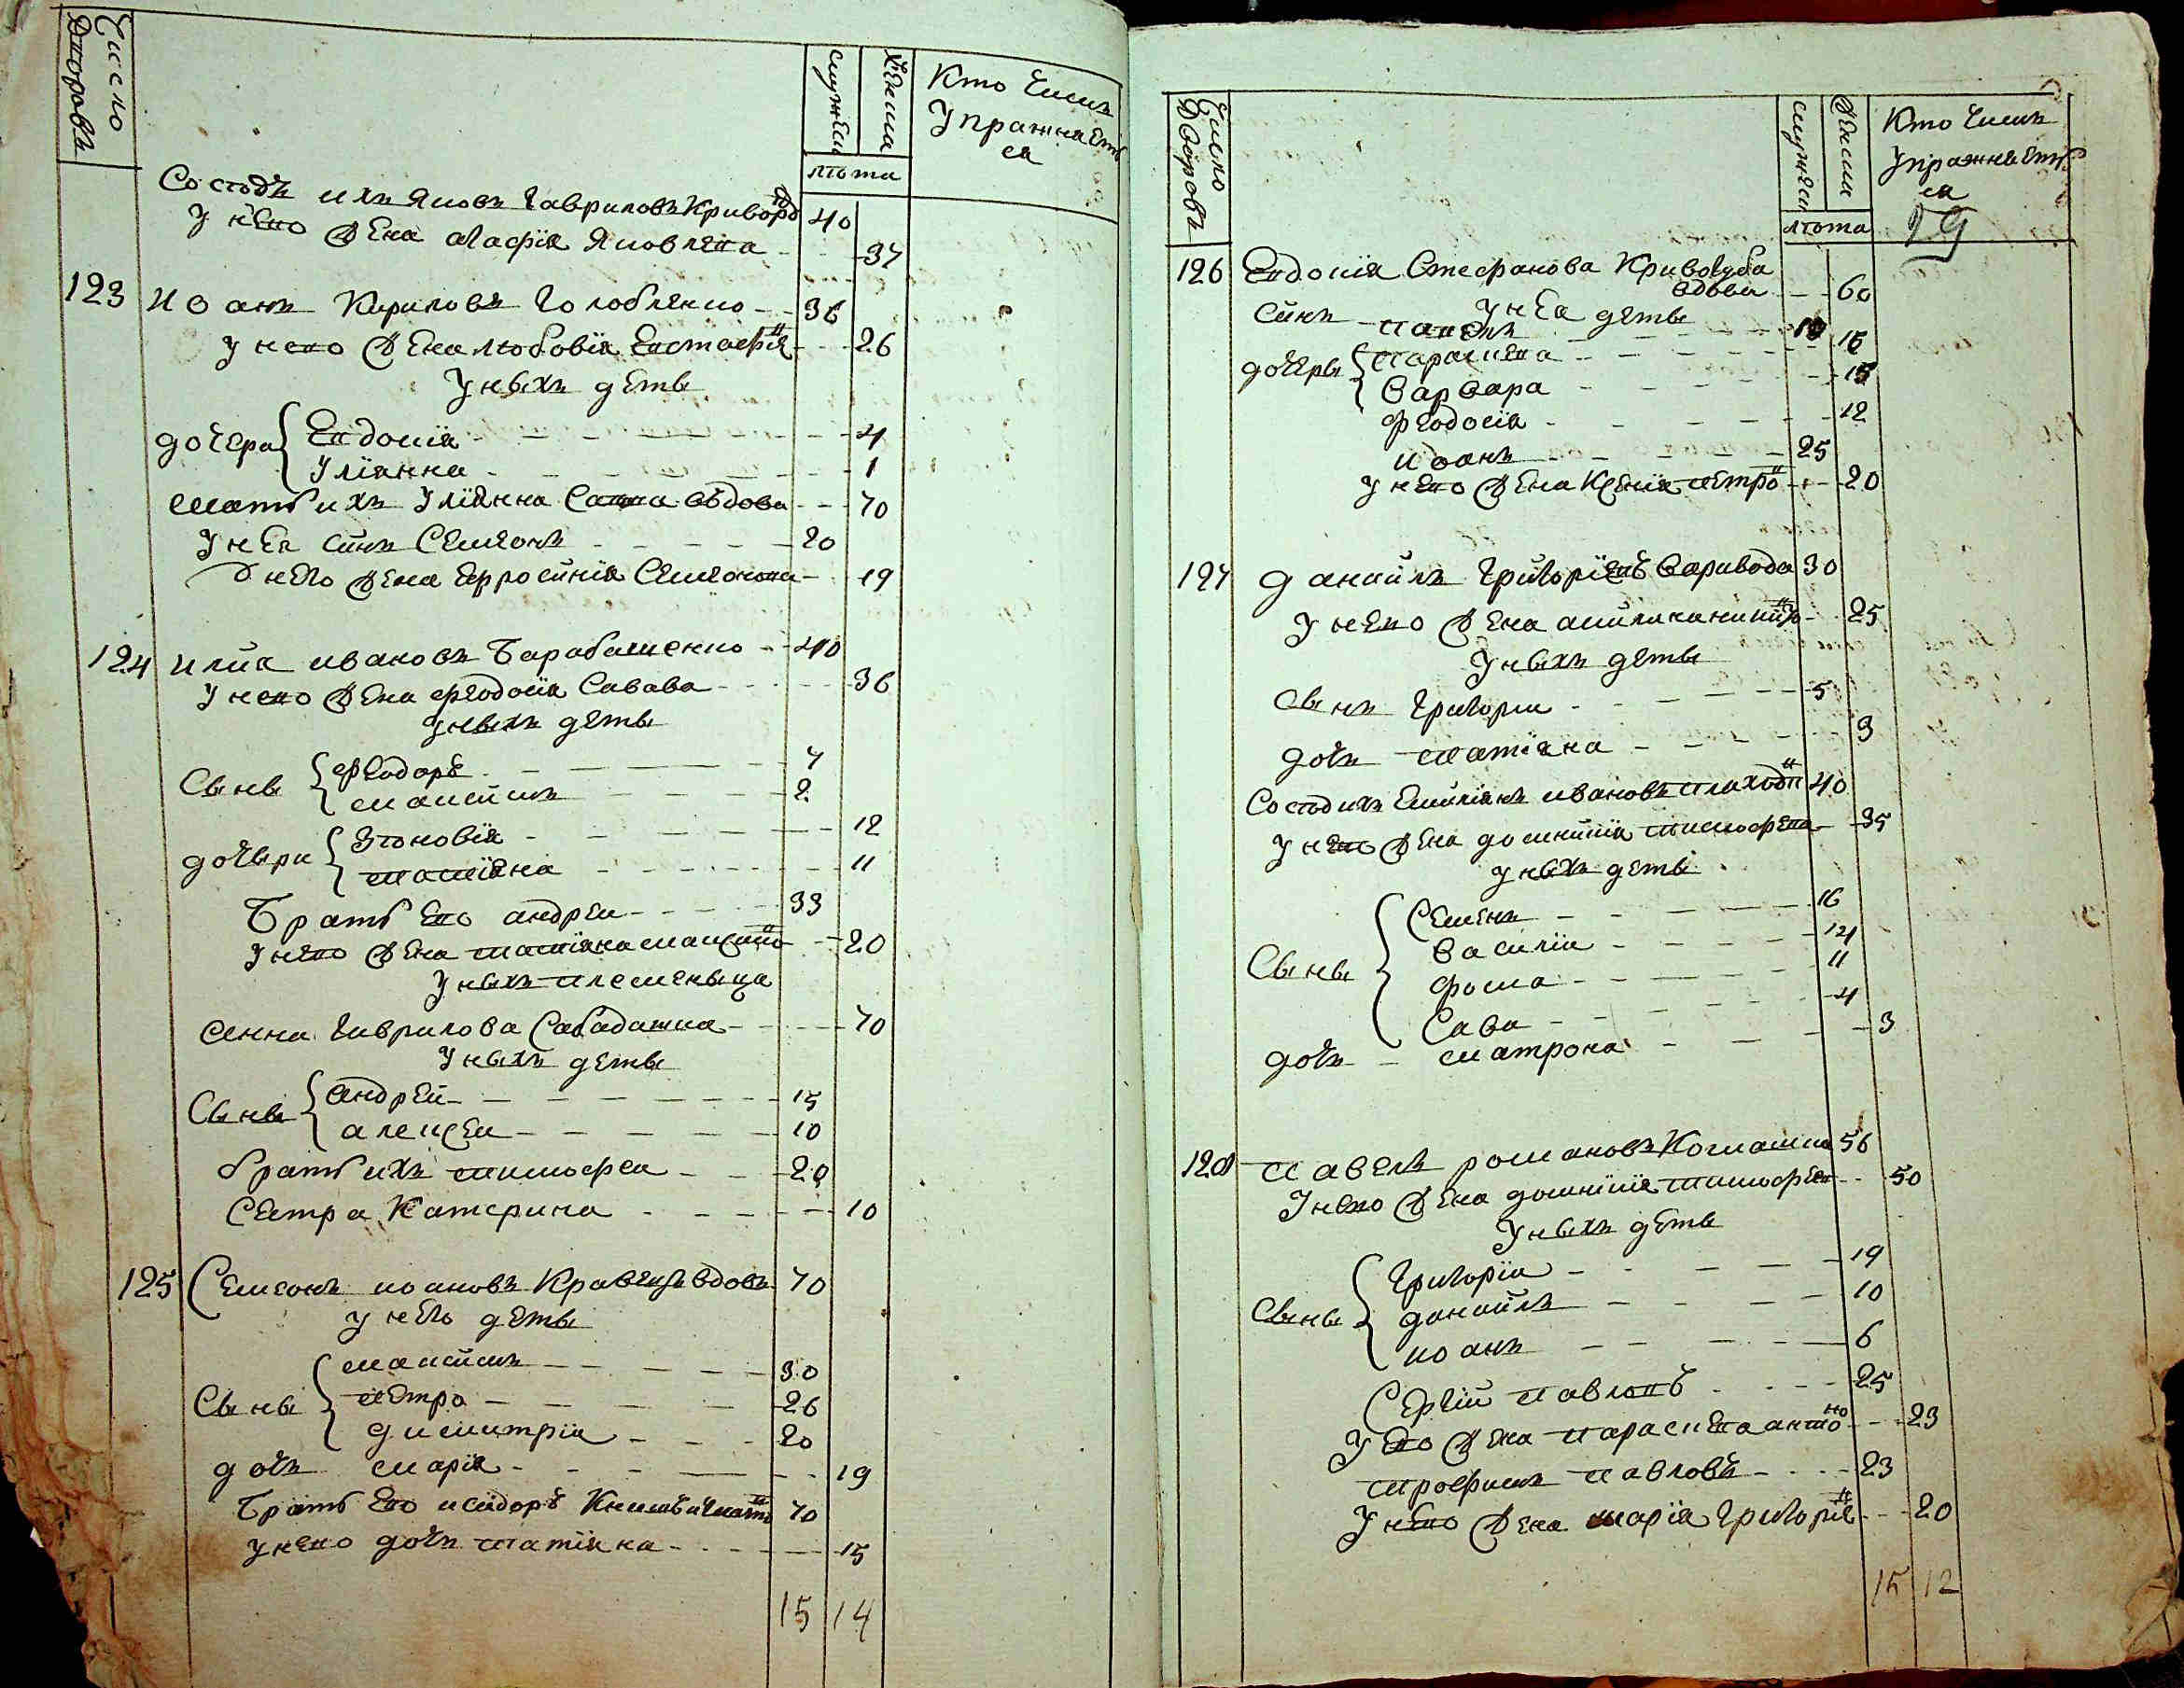 Число Дворовъ
Мужеска
Женска
лѣта
Кто Чимъ
Упражняеть
ся
Соседъ ихъ Яковъ Гавриловъ Криворо 40
У него Жена Агафія Яковлева 37
123 Иоанъ Кириловъ Голобленко 36
У него Жена Любовія Евстафіе 26
У ныхъ деты
дочери Евдокія 4
Уліянна 1
Мать ихъ Уліянна Савина вдова 70
У нея синъ Семеонъ 20
У него Жена Ефросинія Семионова 19
124 Илия Ивановъ Барабашенко 40
У него Жена Феодосія Савова 36
У ныхъ деты
Сыны Феодоръ 7
Максимъ 2
дочыри Зѣновія 12
Татіяна 11
Братъ Его Андреи 33
У него Жена Татіяна Максимо 20
У ныхъ племеныца
Анна Гаврилова Сабадашка 70
У ныхъ деты
Сыны Андрей 15
Алексеи 10
братъ ихъ Тимофеи 20
Сестра Катерина 10
125 Семеонъ Иоановъ Кравецъ вдовъ 70
У него деты
Сыны Максимъ 30
Петро 26
Димитрія 20
дочъ Марія 19
Братъ Его Исидоръ 70
У него дочъ Татіяна 15
15 14
Число Дворовъ
Мужеска
Женска
лѣта
Кто Чимъ
Упражняеть
ся
126 Евдокія Стефанова Кривогуба
вдова 60
У нея деты
Синъ Павелъ 18
дочеры Параскева 16
Варвара 15
Феодосія 12
Иоанъ 25
У него Жена Ксенія Петро 20
127 Даниилъ Григоріевъ Варивода 30
У него Жена 25
У ныхъ деты
Сынъ Григории 5
дочъ Татіяна 3
Соседихъ Емиліянъ Ивановъ 40
У него Жена Домникія Тимофева 35
У ныхъ деты
Сыны Семенъ 16
Василіи 14
Фома 11
Сава 4
дочъ Матрона 3
128 Павелъ Романовъ Комашка 56
У него Жена Домникія Тимофеев 50
У ныхъ деты
Сыны Григоріи 19
Даниилъ 10
Иоанъ 6
Сергій Павловъ 25
У Его Жена Параскева Антоно 23
Трофимъ Павловъ 23
У него Жена Марія Григоріе 20
15 12